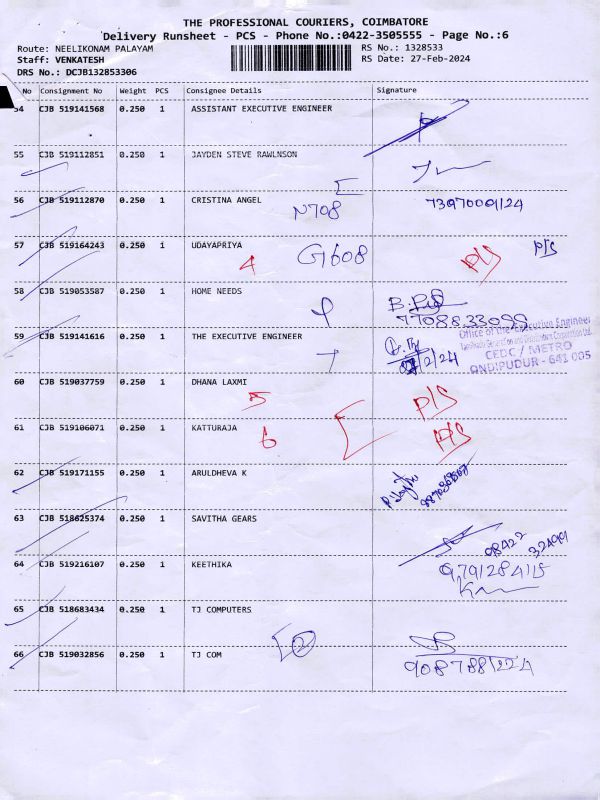 THE PROFESSIONAL COURIERS, COIMBATORE
Delivery Runsheet - PCS - Phone No.:0422-3505555 - Page No.:6
Route: NEELIKONAM PALAYAM RS No.: 1328533
Staff: VENKATESH RS Date: 27-Feb-2024
DRS No.: DCJB132853306
No Consignment No Weight PCS Consignee Details Signature
54 CJB 519141568 0.250 1 ASSISTANT EXECUTIVE ENGINEER
55 CJB 519112851 0.250 1 JAYDEN STEVE RAWLNSON
56 CJB 519112870 0.250 1 CRISTINA ANGEL N708 73970001124
57 CJB 519164243 0.250 1 UDAYAPRIYA 4 G1608 P/S P/S
58 CJB 519053587 0.250 1 HOME NEEDS
7708833099
59 CJB 519141616 0.250 1 THE EXECUTIVE ENGINEER
Office of the Executive Engineer
CEDC / METRO
ONDIPUDUR - 641 005
60 CJB 519037759 0.250 1 DHANA LAXMI 5 P/S
61 CJB 519106071 0.250 1 KATTURAJA 6 P/S
62 CJB 519171155 0.250 1 ARULDHEVA K
63 CJB 518625374 0.250 1 SAVITHA GEARS 98422 32499
64 CJB 519216107 0.250 1 KEETHIKA 9791284115
65 CJB 518683434 0.250 1 TJ COMPUTERS
66 CJB 519032856 0.250 1 TJ COM 2 9087881224